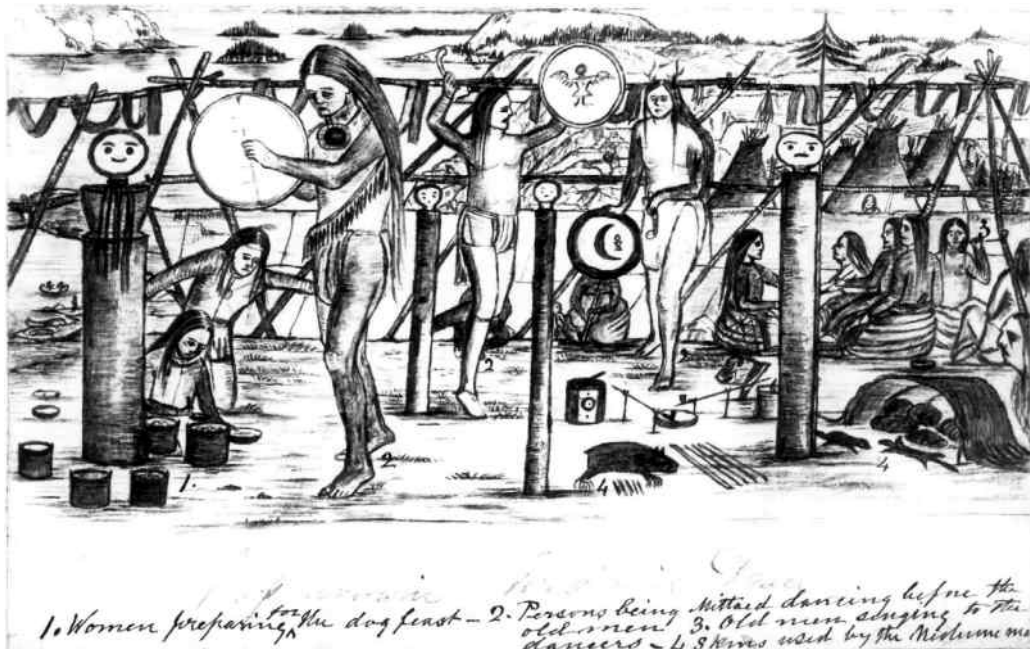 3
2
4
2
4
1.
1. Women preparing for the dog feast – 2. Persons being Mittaed dancing before the
old men 3. Old men singing to the
dancers – 4 Skins used by the Medicine me